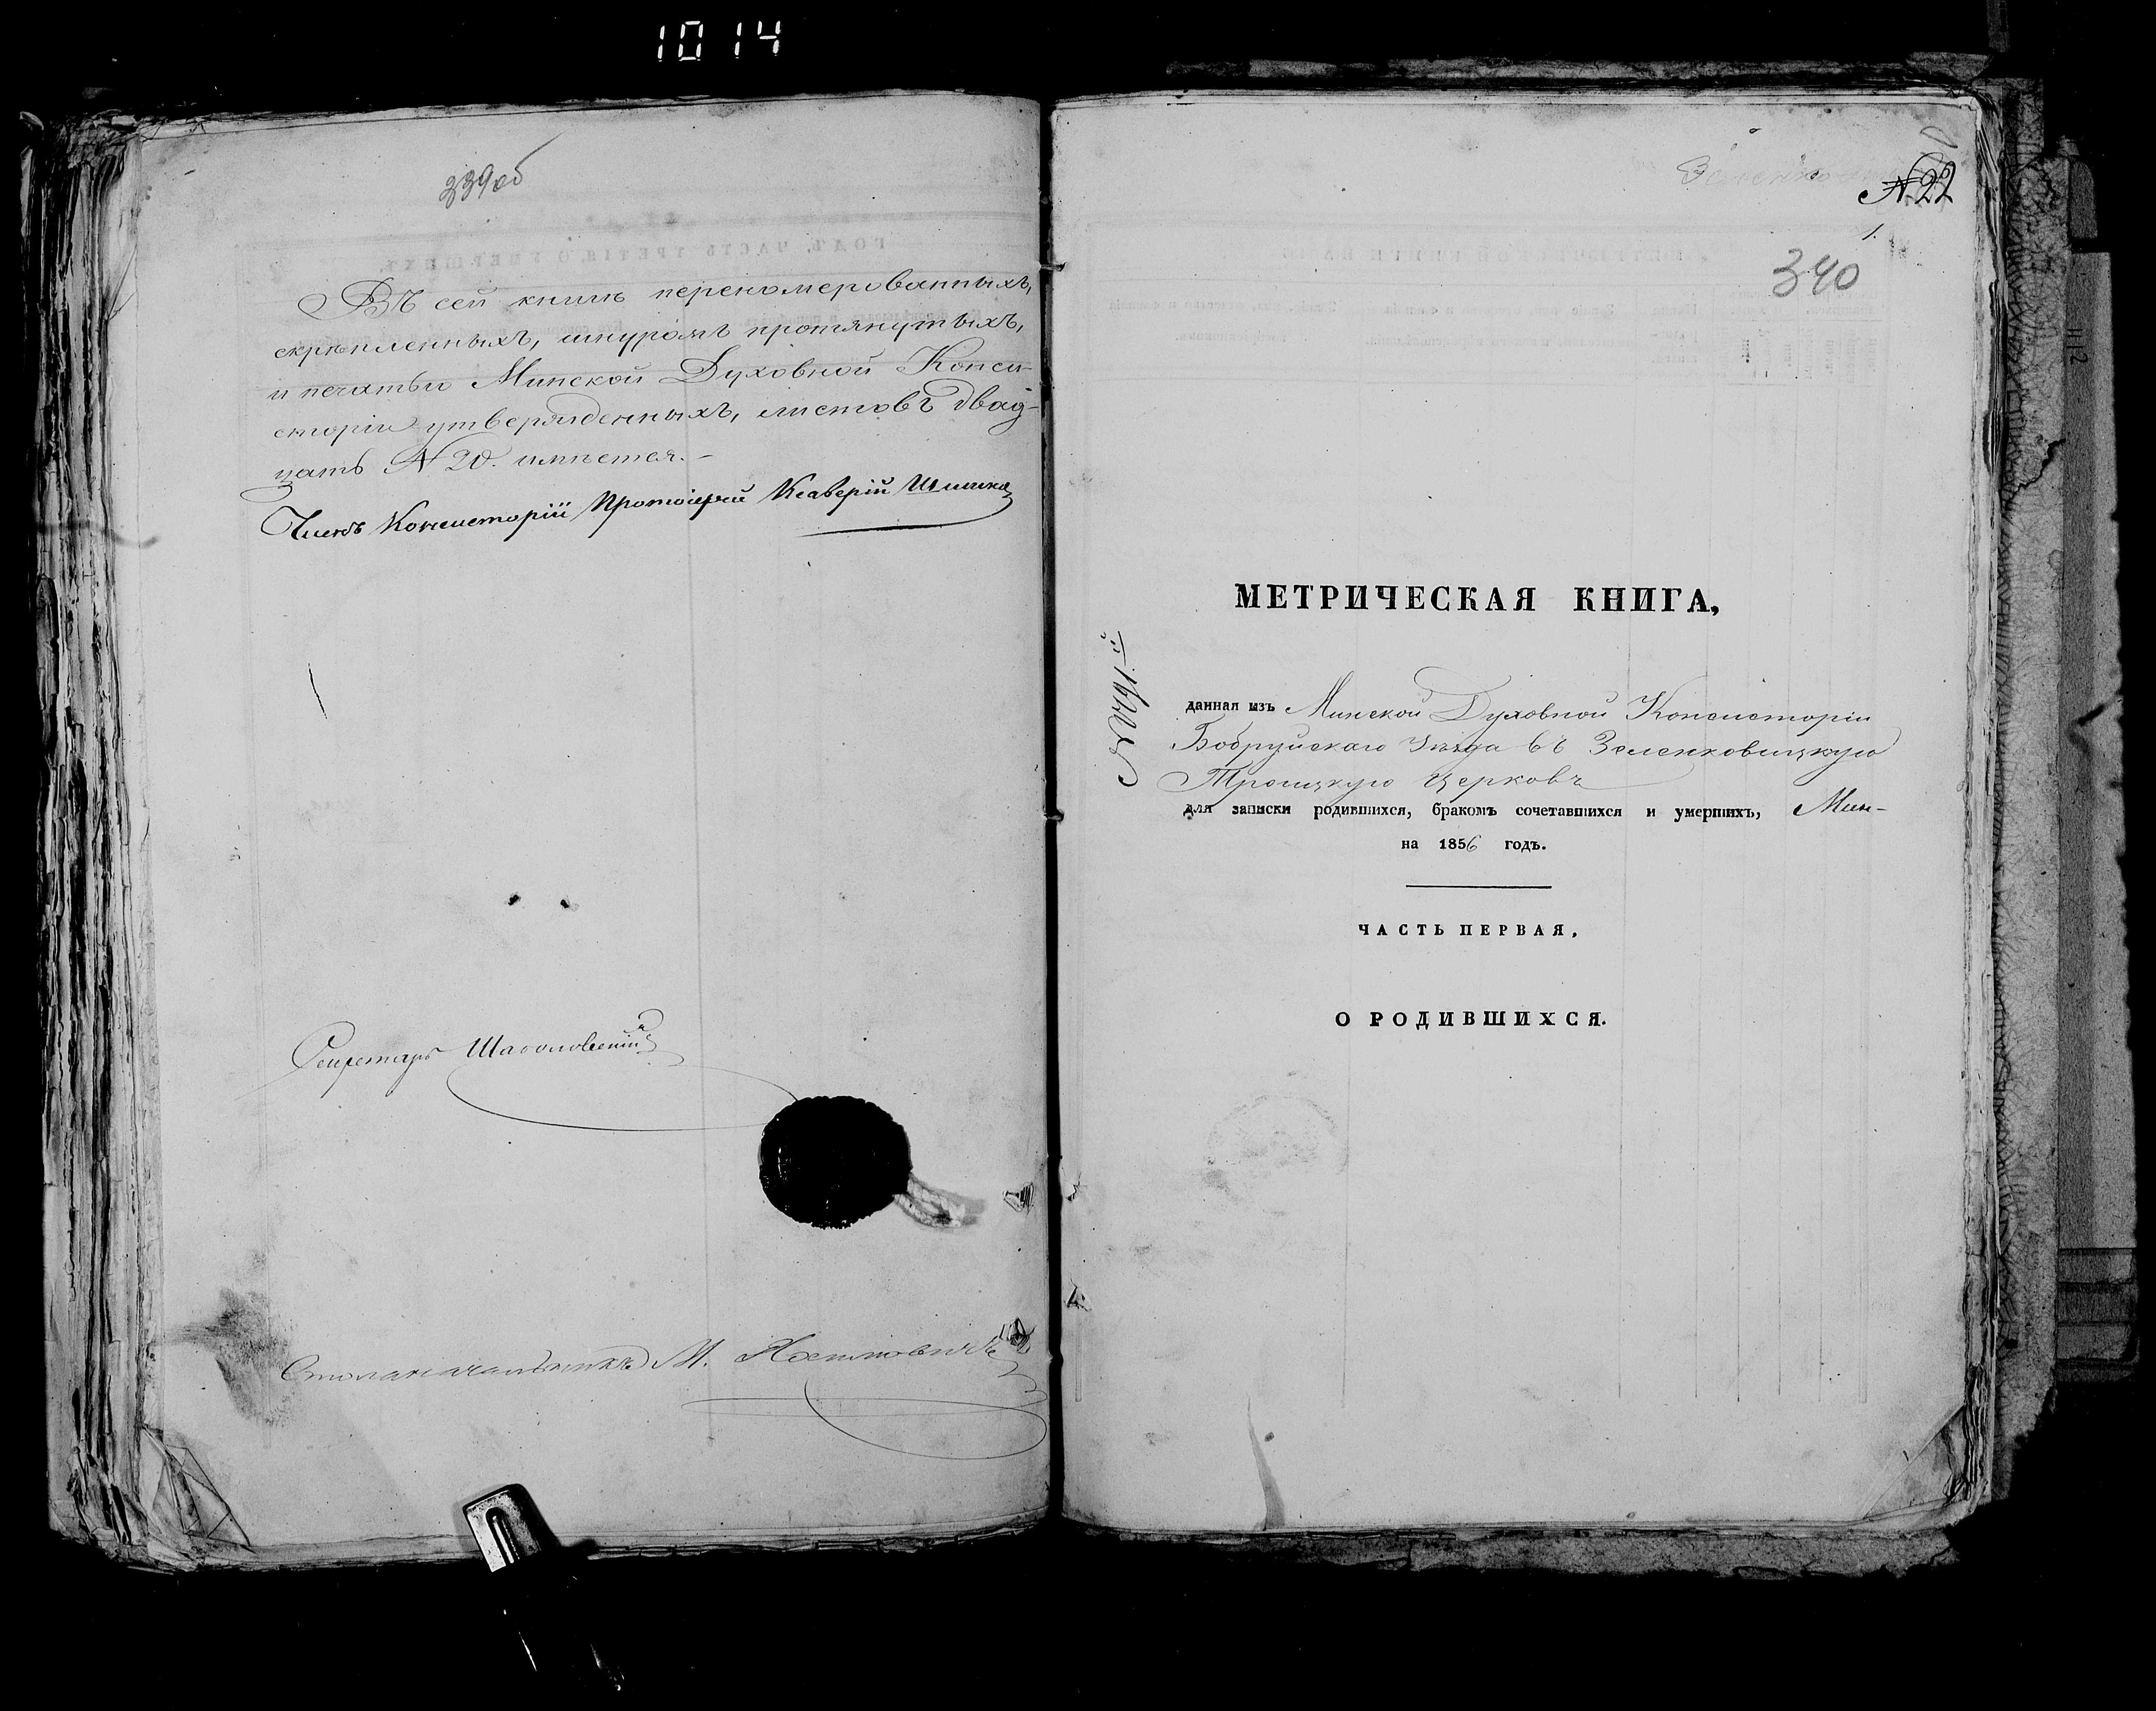 1014
339об
Въ сей книгѣ перономерованныхъ,
скрѣпленныхъ, шнуромъ протянутыхъ,
и печатью Минской Духовной Конси-
сторіи утвержденныхъ, листовъ двад-
цать № 20. имѣется.-
Членъ Консисторіи Протоіерей Ксаверій
Секретарь
Столоначальникъ М.
Зеленков
№ 22
1.
340
МЕТРИЧЕСКАЯ КНИГА,
данная изъ Минской Духовной Консисторіи
Бобруйскаго Уѣзда въ Зеленковицкую
Троицкую Церковь
для записки родившихся, бракомъ сочетавшихся и умершихъ, Мин-
на 1856 годъ.
ЧАСТЬ ПЕРВАЯ,
О РОДИВШИХСЯ.
112